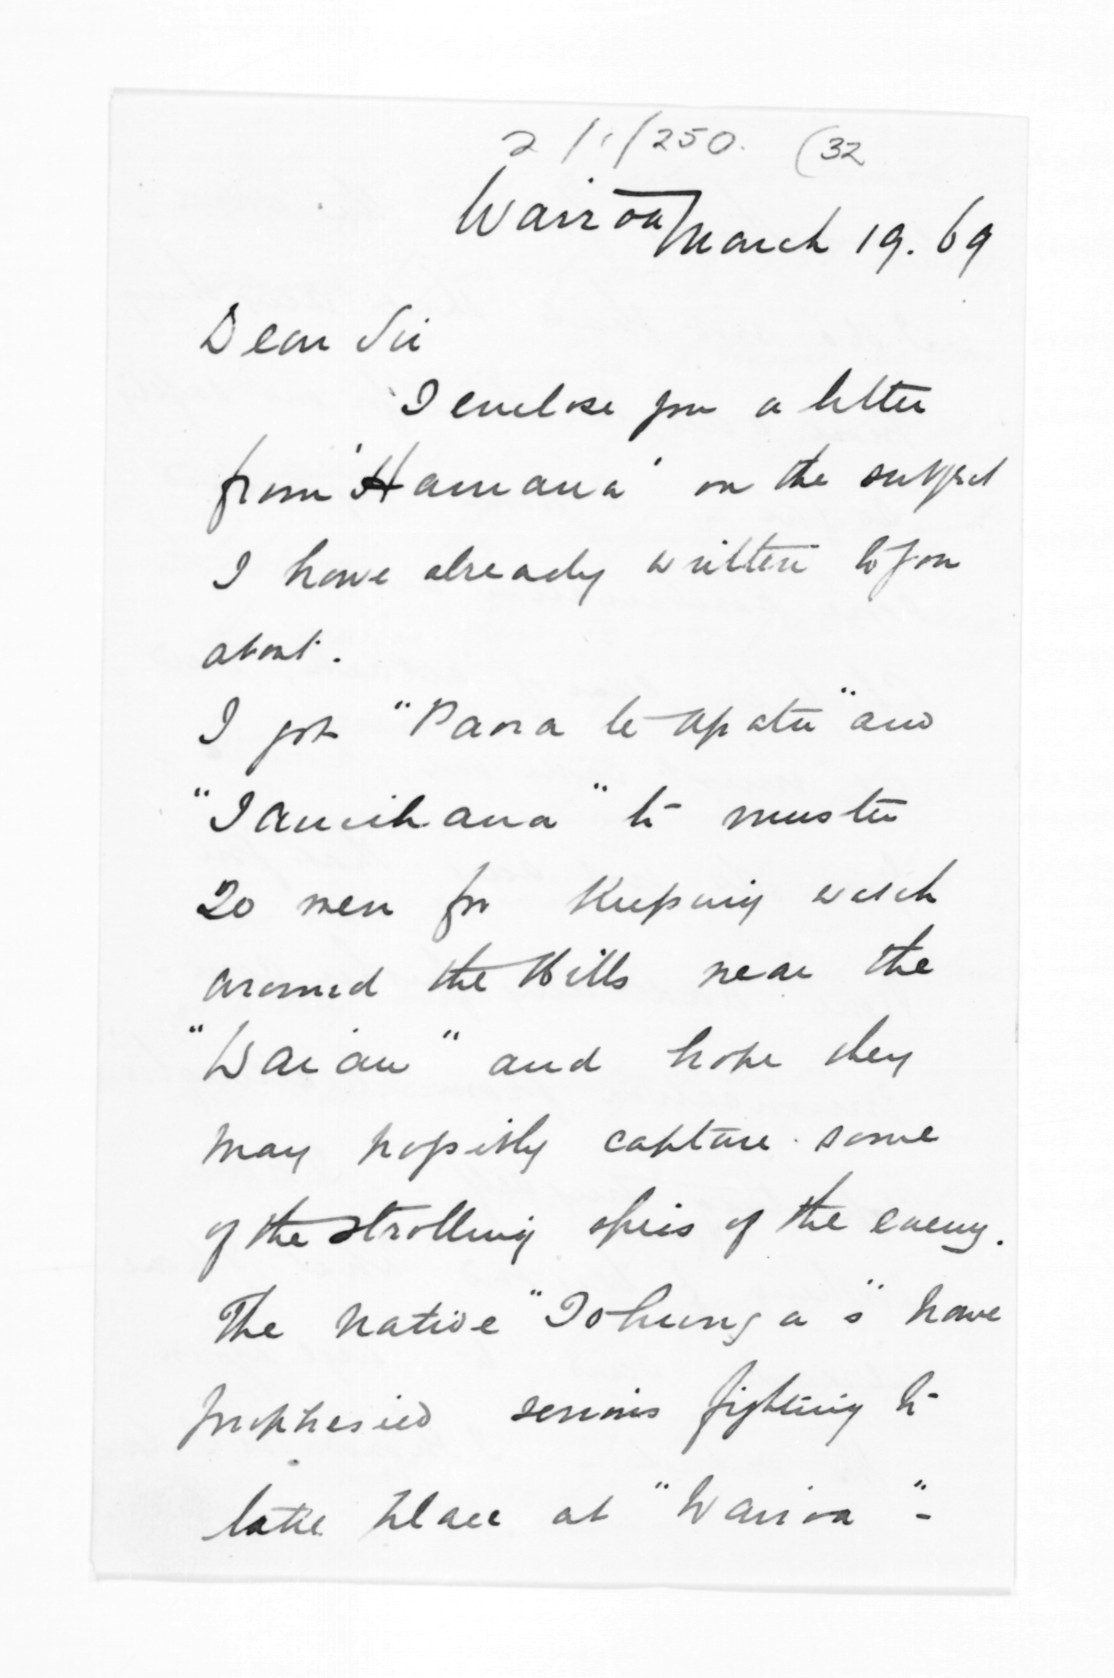 2/1/250. (32
Wairoa March 19. 69
Dear Sir
I enclose you a letter
from 'Hamana' on the subject
I have already written to you
about.
I got "Paora te Apatu" and
"Tamihana" to muster
20 men for Keeping watch
around the Hills near the
"Waiau" and hope they
may possibly capture some
of the strolling spies of the enemy.
The native "Tohunga"s have
prophesied serious fighting to
take place at "Wairoa"-